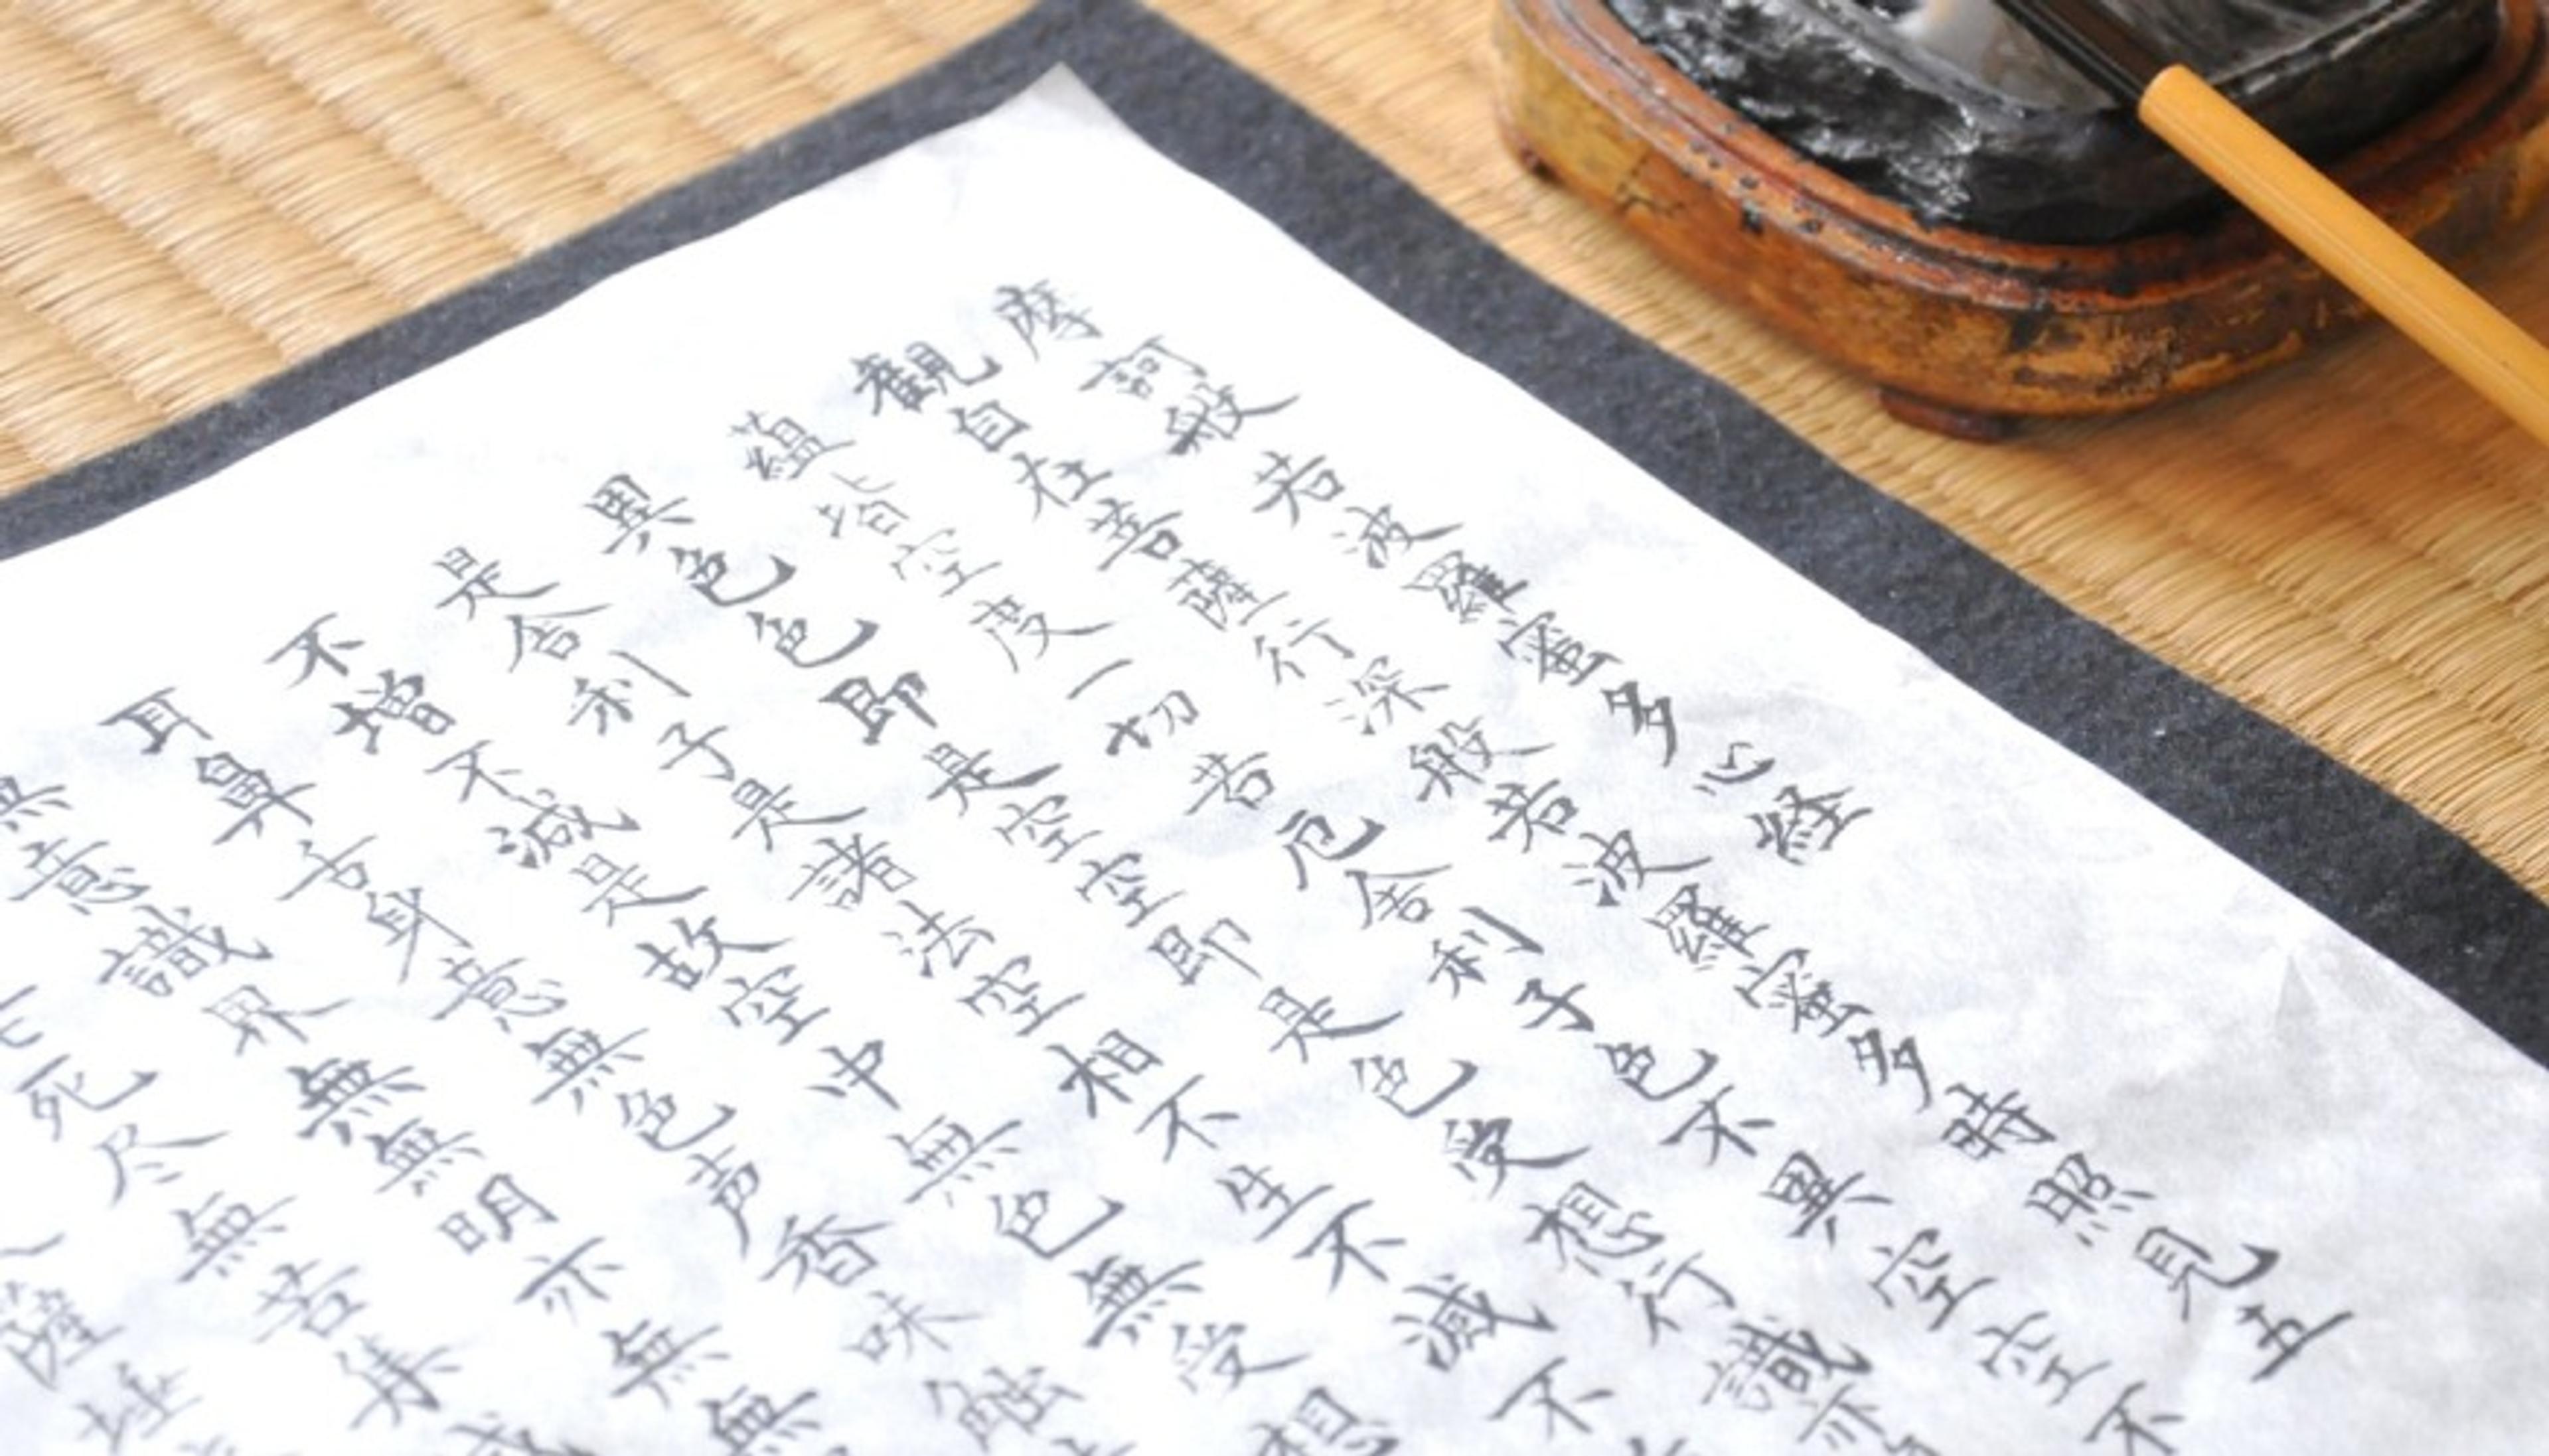 摩訶般若波羅蜜多心経
観自在菩薩行深般若波羅蜜多時照見五
蘊皆空度一切苦厄舎利子色不異空空不
異色色即是空空即是色受想行識亦
是舎利子是諸法空相不生不滅不
不増不減是故空中無色無受想
耳鼻舌身意無色声香味触
無意識界無無明亦無無
死尽無苦集滅
薩埵